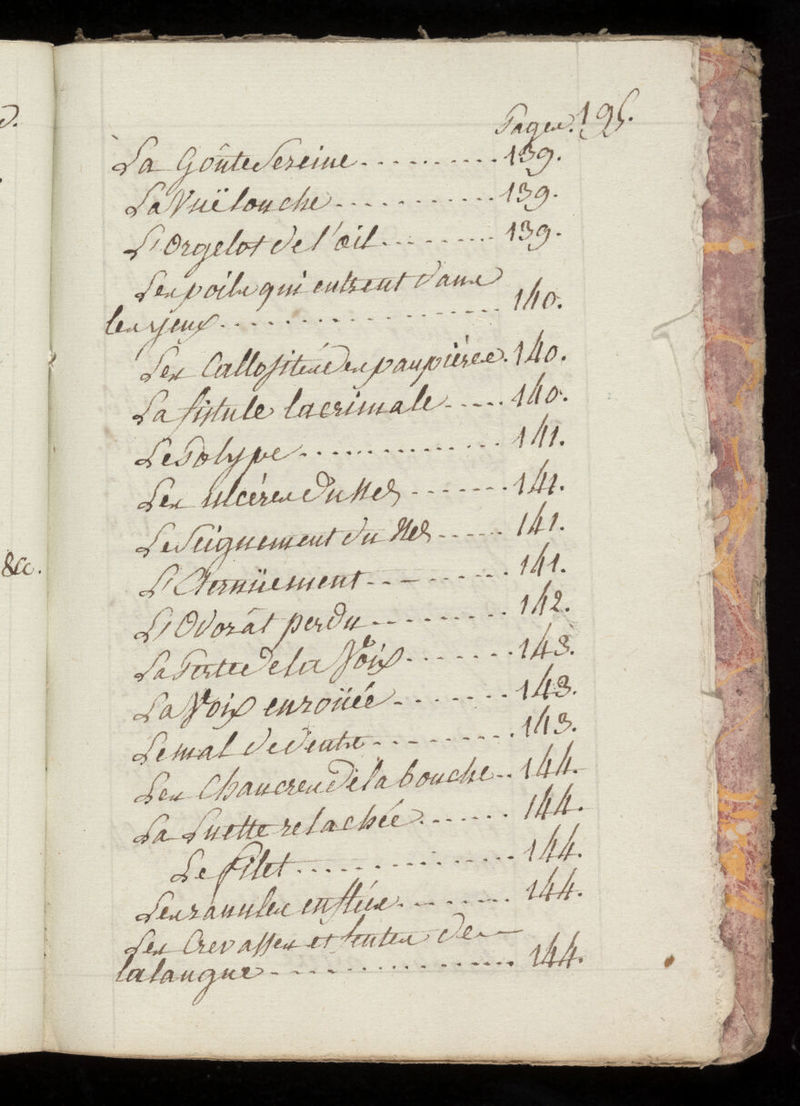 Pages. 195.
La Goûte Sereine . . . . . . . . . . 139.
La Vuë louche . . . . . . . . . . . . 139.
L'Orgelot de l'œil . . . . . . . . . 139.
Les poils qui entrent dans
les yeux . . . . . . . . . . . . . . . . . . 140.
Les Callosités des paupières . 140.
La fistule lacrimale . . . . . 140.
Le Polype . . . . . . . . . . . . . . 141.
Les ulcéres du Nes . . . . . . . 141.
Le Seignement du Nes . . . . . 141.
L'Eternüement . . . . . . . . . . 141.
L'Odorât perdu . . . . . . . . . . 142.
La Perte de la Voix . . . . . . . 143.
La Voix enroüée . . . . . . . . 143.
Le mal de dents . . . . . . . . . . 143.
Les Chancres de la bouche . . 144.
La Luette relachée . . . . . . 144.
Le filet . . . . . . . . . . . . . . . 144.
Les ranules enflées . . . . . . . 144.
Les Crevasses et fentes de
la langue . . . . . . . . . . . . . . . . . 144.
&c.